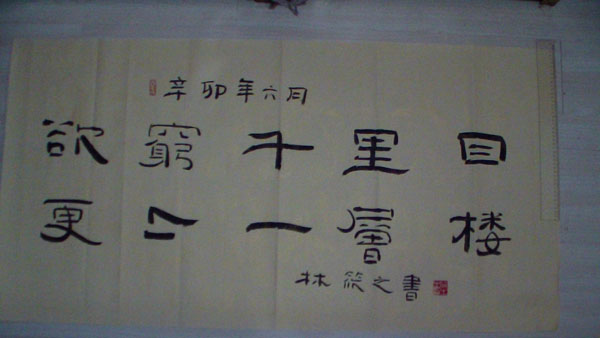 辛卯年六月
欲窮千里目
更上一層楼
林筱之書